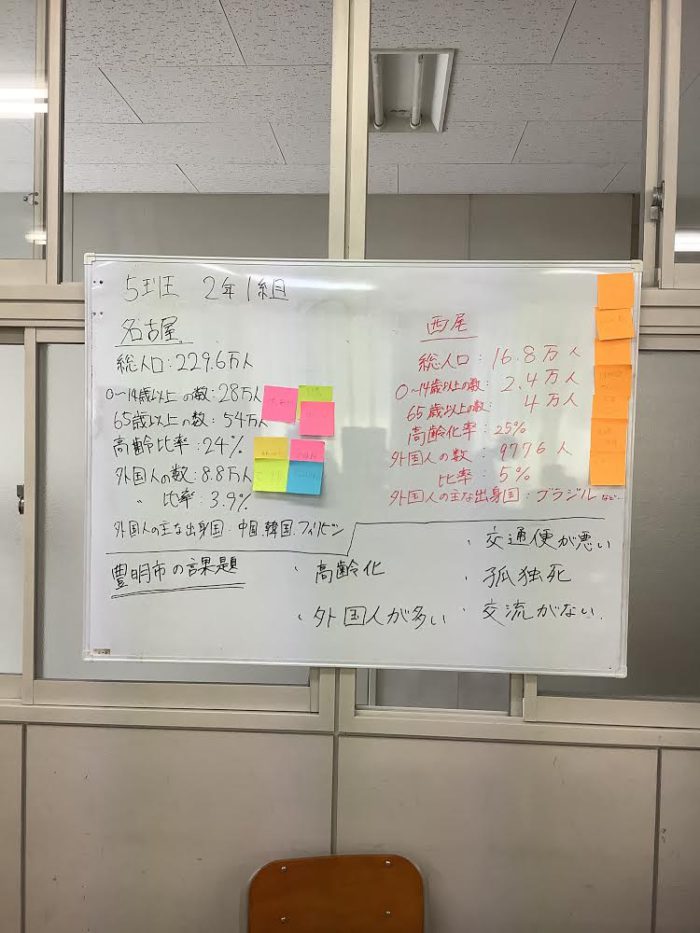 5班 2年1組
名古屋
総人口:229.6万人
0~14歳以上の数:28万人
65歳以上の数:54万人
高齢比率:24%
外国人の数:8.8万人
〃 比率:3.9%
外国人の主な出身国:中国、韓国、フィリピン
西尾
総人口:16.8万人
0~14歳以上の数:2.4万人
65歳以上の数:4万人
高齢化率:25%
外国人の数:9776人
比率:5%
外国人の主な出身国:ブラジルなど
豊明市の課題
・高齢化
・外国人が多い
・交通便が悪い
・孤独死
・交流がない